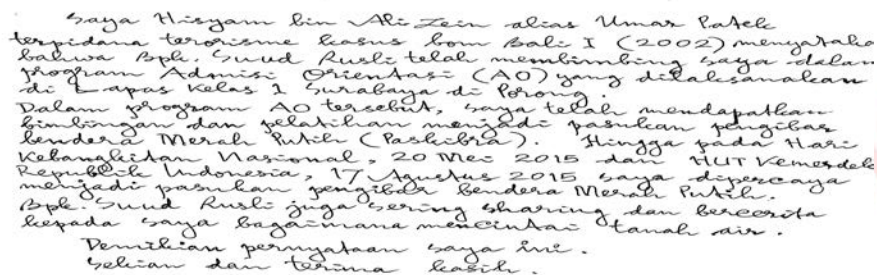 Saya Hisyam bin Ali Zein alias Umar Patek
terpidana terorisme kasus bom Bali I (2002) menyataka
bahwa Bpk. Suud Rusli telah membimbing saya dalam
program Admisi Orientasi (AO) yang dilaksanakan
di Lapas Kelas 1 Surabaya di Porong.
Dalam program AO tersebut, saya telah mendapatkan
bimbingan dan pelatihan menjadi pasukan pengibar
bendera Merah Putih (Paskibra). Hingga pada Hari
Kebangkitan Nasional, 20 Mei 2015 dan HUT Kemerdek
Republik Indonesia, 17 Agustus 2015 saya dipercaya
menjadi pasukan pengibar bendera Merah Putih.
Bpk. Suud Rusli juga sering sharing dan bercerita
kepada saya bagaimana mencintai tanah air.
Demikian pernyataan saya ini.
Sekian dan terima kasih.